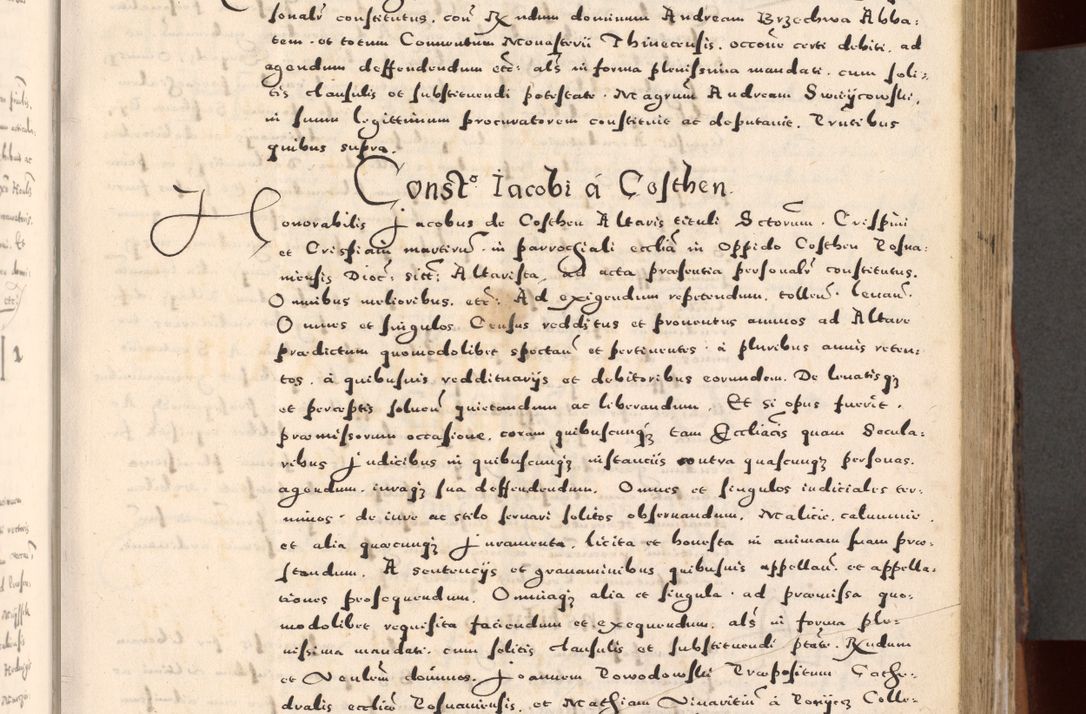 sonalr constitutus. con Rndum dominum Andream Brzechwa Abba:
tem. et totum Conventum Monasterii Thinecensis. occone certi debiti. ad
agendum deffendendum etc: als in forma plenissima mandati. cum soli:
tis clausulis et substituendi potestate. Magrum Andream
in suum legittimum procuratorem constituit ac deputavit. Prntibus
quibus supra.
Const° Iacobi á Costhen.
Honorabilis Jacobus de Costhen Altaris tituli Sctorum. Crispini
et Crispiani martirum. in parrochiali ecclia in Oppido Costhen Posna:
niensis Dioc: sitt: Altarista, ad acta praesentia personalr constitutus.
Omnibus melioribus. etc: Ad exigendum repetendum. tollen. levan.
Omnes et singulos Census redditus et proventus annuos ad Altare
praedictum quomodolibet spectan et pertinentes. à pluribus annis reten:
tos. à quibusvis reddituarijs et debitoribus eorundem. De levatisqz
et perceptis solven quietandum ac liberandum. Et si opus fuerit.
praemissorum occasione. coram quibuscunqz tam Eccliacis quam Secula:
ribus Judicibus in quibuscunqz instanciis contra quascunqz personas.
agendum. invaqz sua deffendendum. Omnes et singulos iudiciales ter:
minos. de iure ac stilo servari solitos observandum. Malicie. calumnie.
et alia quaecunqz Juramenta. licita et honesta in animam suam prae:
standum. A sentencijs et gravaminibus quibusvis appellan. et appella:
tiones prosequendum. Omniaqz alia et singula. ad praemissa quo:
modolibet requisita faciendum et exequendum. als in forma ple:
nissima mandati. cum solitis clausulis et substituendi ptate. Rndum
et Venlem dominos. Joannem Powodowski Praepositum Cathe:
dralis ecclie Posnaniensis. et Mathiam à Colle: